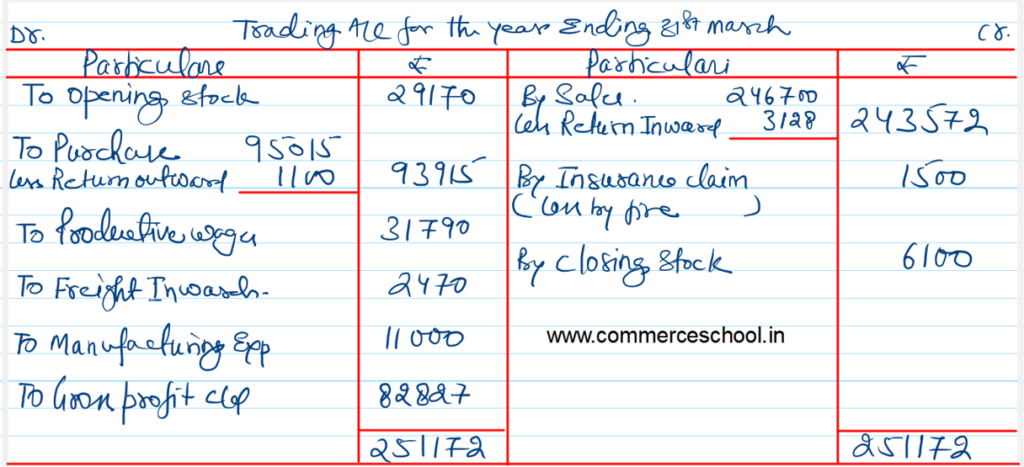 Trading A/c for the year Ending 31st march
Dr. Cr.
Particulars ₹ Particulars ₹
To Opening stock 29170 By Sales. 246700
Less Return Inward 3128 243572
To Purchase 95015
Less Return outward 1100 93915 By Insurance claim 1500
(Loss by fire )
To Productive wages 31790
By Closing Stock 6100
To Freight Inwards- 2470
To Manufacturing Exp 11000 www.commerceschool.in
To Gross profit c/d 82827
251172 251172